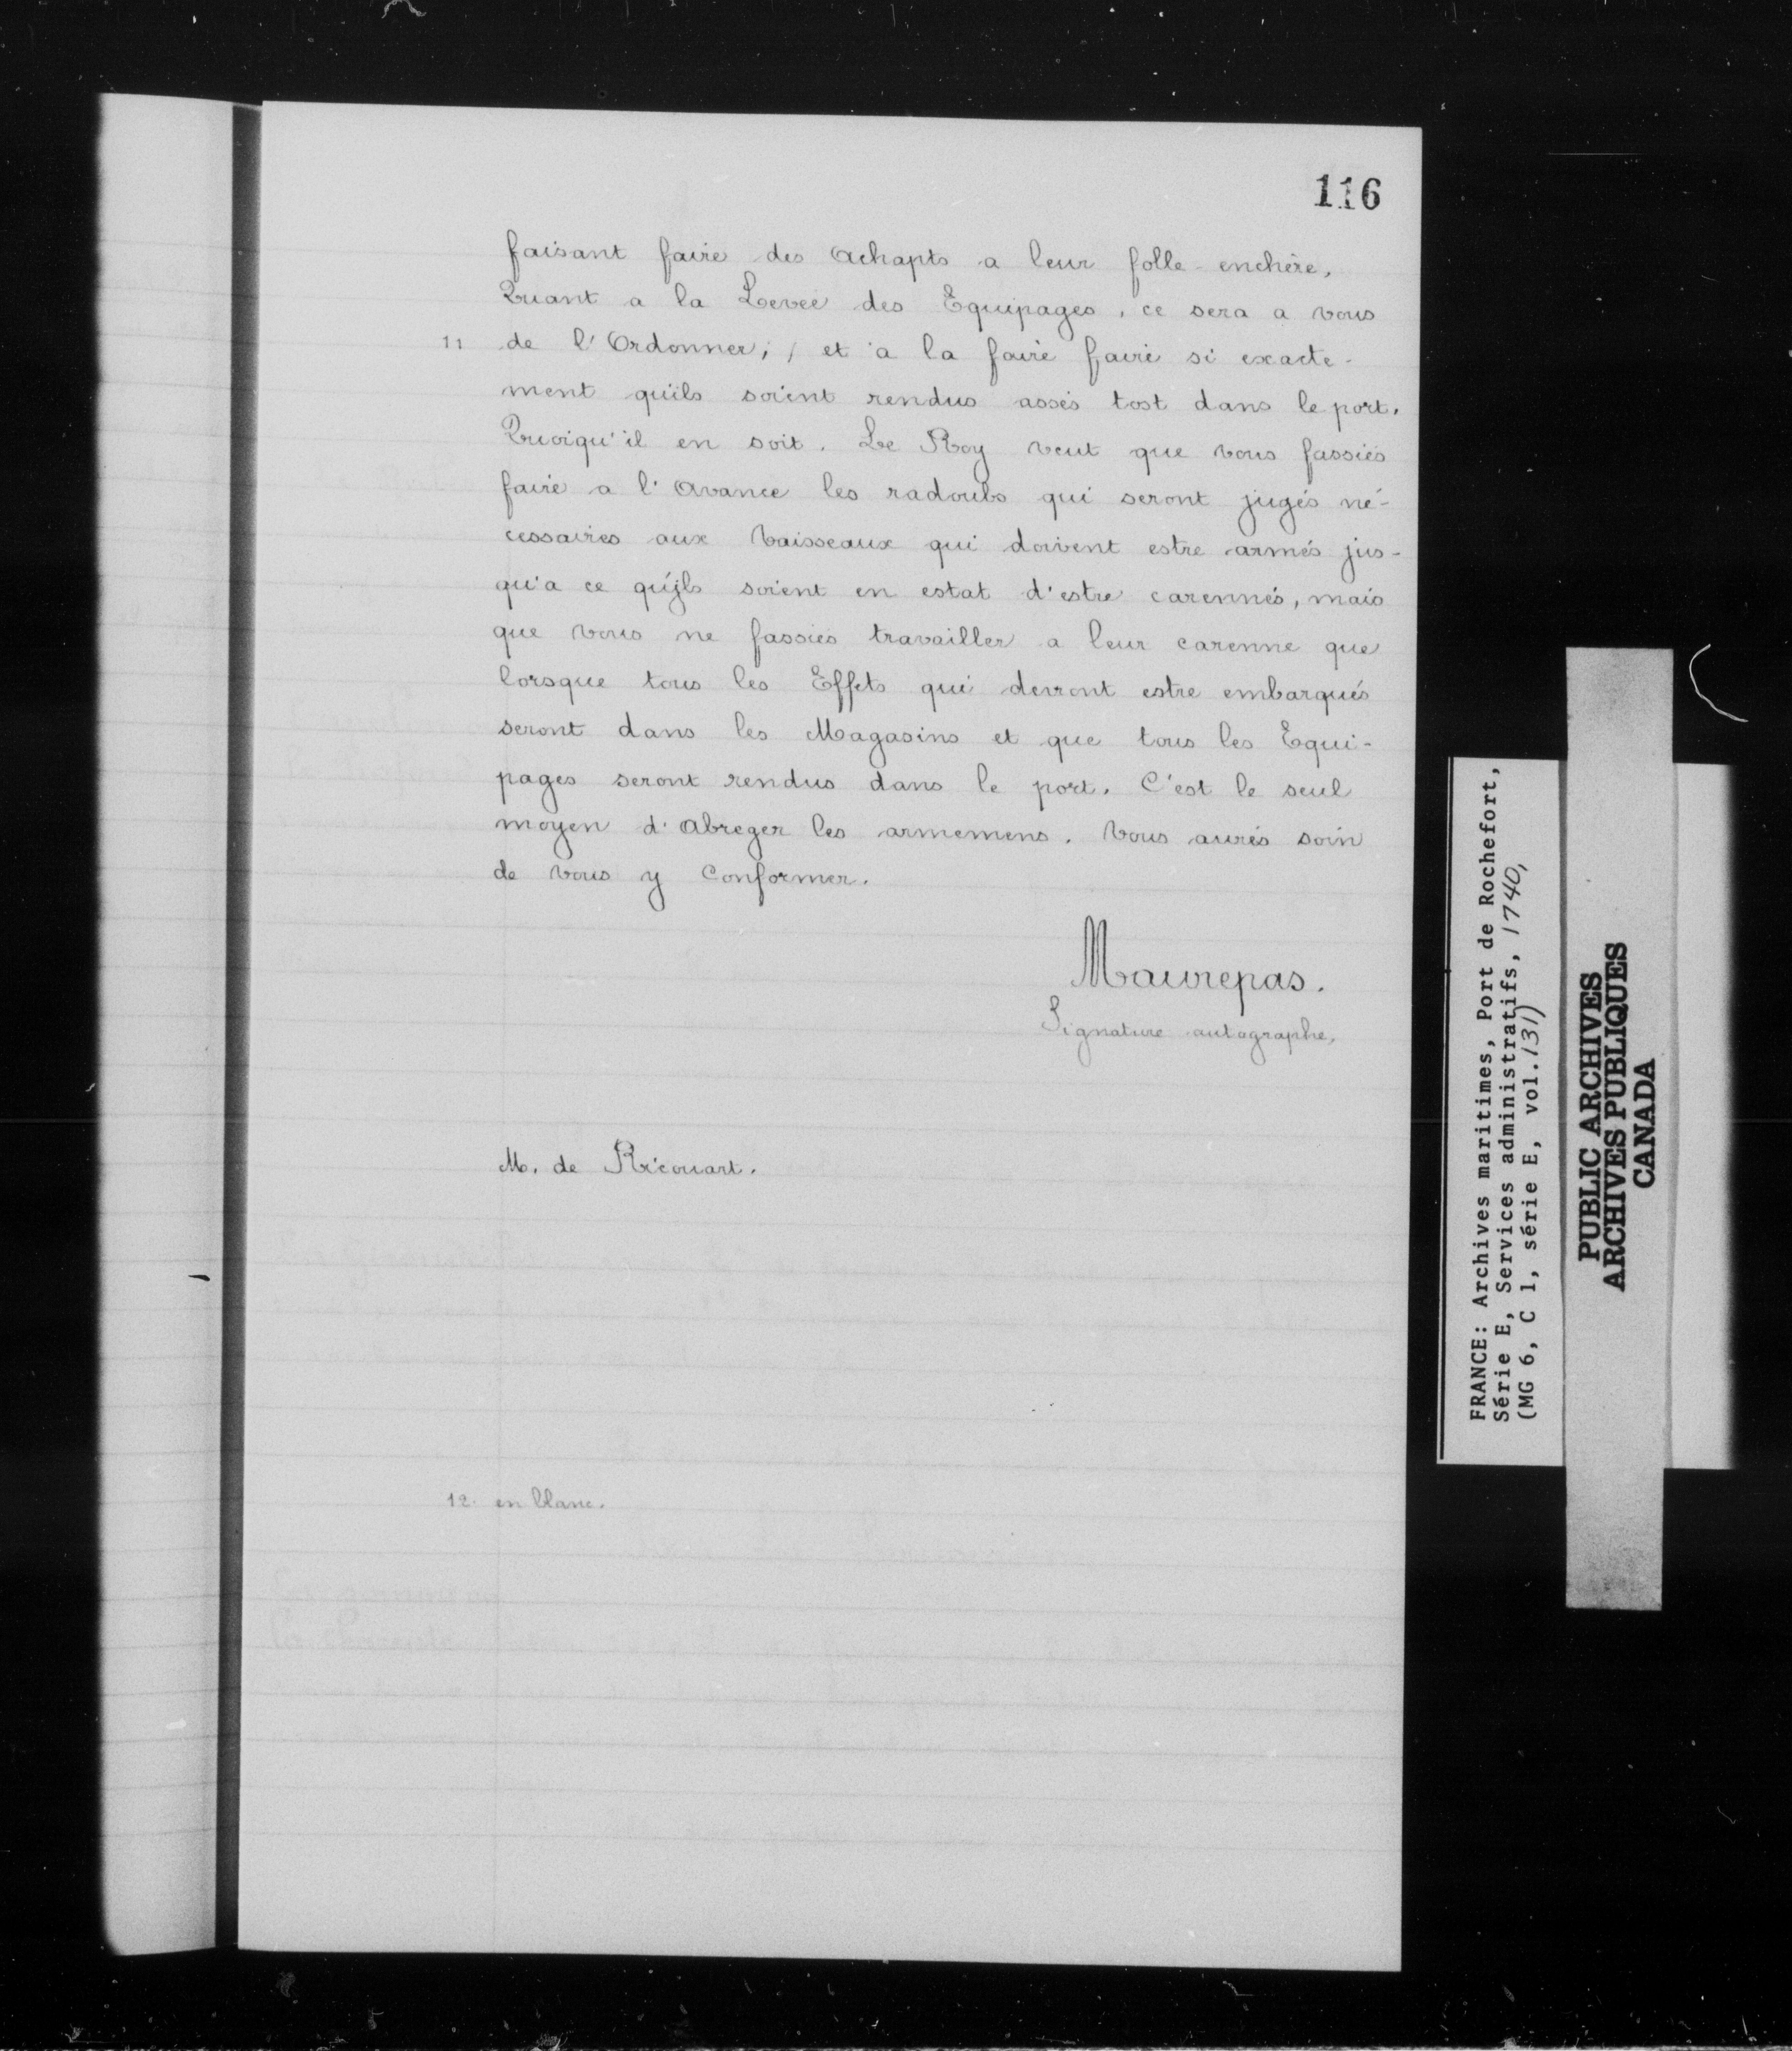 116
faisant faire des Achapts a leur folle-enchère,
Quant a la Levée des Equipages, ce sera a vous
11 de l'Ordonner; / et a la faire faire si exacte-
ment qu'ils soient rendus assés tost dans le port.
Quoiqu'il en soit. Le Roy veut que vous fassiés
faire a l'Avance les radoubs qui seront jugés né-
cessaires aux Vaisseaux qui doivent estre armés jus-
qu'a ce qu'jls soient en estat d'estre carennés, mais
que vous ne fassiés travailler a leur carenne que
lorsque tous les Effets qui devront estre embarqués
seront dans les Magasins et que tous les Equi-
pages seront rendus dans le port. C'est le seul
moyen d'Abreger les armemens. Vous aurés soin
de vous y Conformer.
Maurepas.
Signature autographe.
M. de Ricouart.
12. en blanc.
FRANCE: Archives maritimes, Port de Rochefort,
Série E, Services administratifs, 1740,
(MG 6, C 1, série E, vol. 131)
PUBLIC ARCHIVES
ARCHIVES PUBLIQUES
CANADA